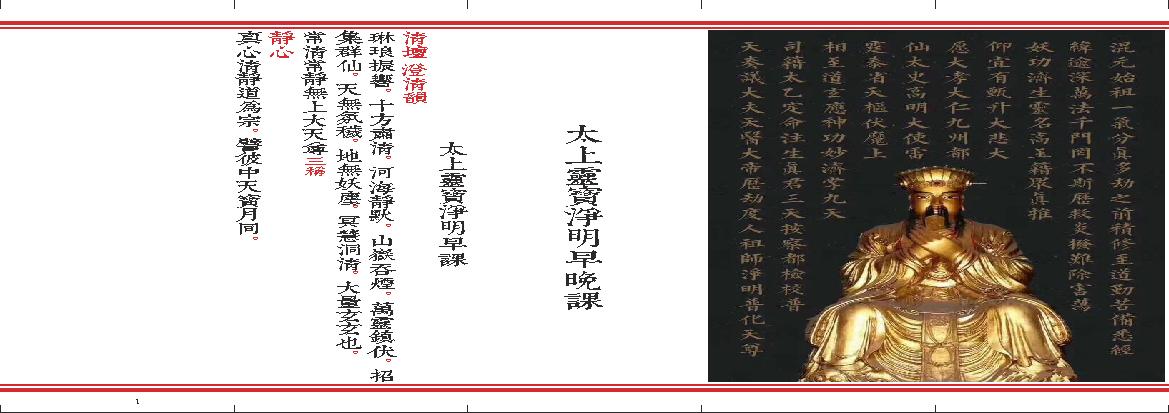 混元始祖一氣分真多劫之前積修至道勤苦備悉經
緯逾深萬法千門罔不斷歷救災撥難除害蕩
妖功濟生靈名高玉籍眾真推
仰宜有甄升大悲大
愿大孝大仁九州都
仙太史高明大使雷
霆泰省天樞伏魔上
相至道玄應神功妙濟掌九天
司籍太乙定命注生真君三天按察都檢校普
天奏議大夫天醫大帝歷劫度人祖師淨明普化天尊
太上靈寶淨明早晚課
太上靈寶淨明早課
清壇 澄清韻
琳琅振響。十方肅清。河海靜默。山嶽吞煙。萬靈鎮伏。招
集群仙。天無氛穢。地無妖塵。冥慧洞清。大量玄玄也。
常清常靜無上大天尊三稱
靜心
真心清靜道為宗。譬彼中天寶月同。
1